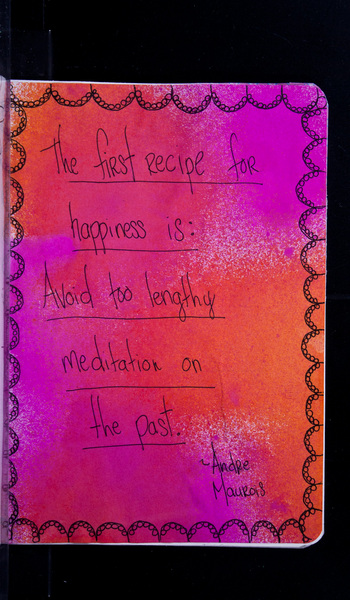 The first recipe for
happiness is:
Avoid too lengthy
meditation on
the past.
~Andre
Maurois